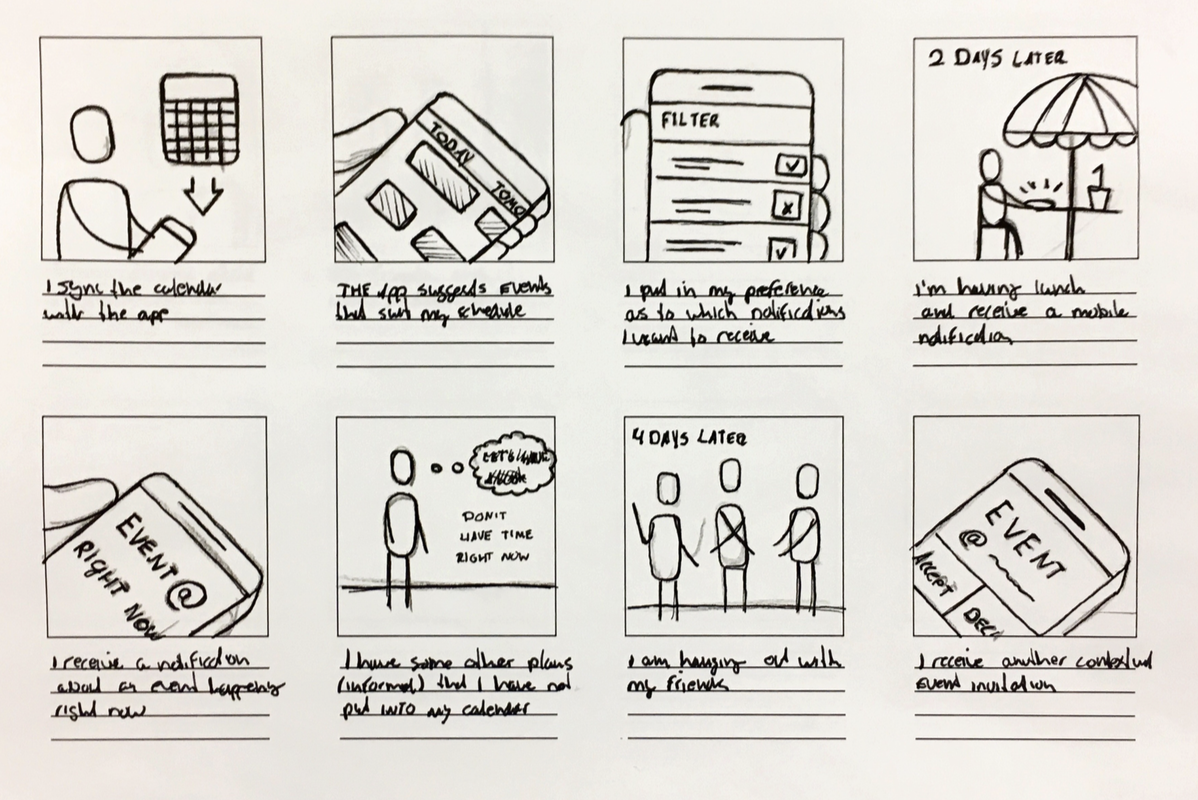 I sync the calendar
with the app
TODAY
TOMO
THE App suggests Events
that suit my schedule
FILTER
I put in my preference
as to which notifications
I want to receive
2 DAYS LATER
I'm having lunch
and receive a mobile
notification
EVENT @
RIGHT NOW
I receive a notification
about an event happening
right now
LET'S
DON'T
HAVE TIME
RIGHT NOW
I have some other plans
(informal) that I have not
put INTO my calendar
4 DAYS LATER
I am hanging out with
my friends
EVENT
@
ACCEPT
DECL
I receive another contextual
Event invitation